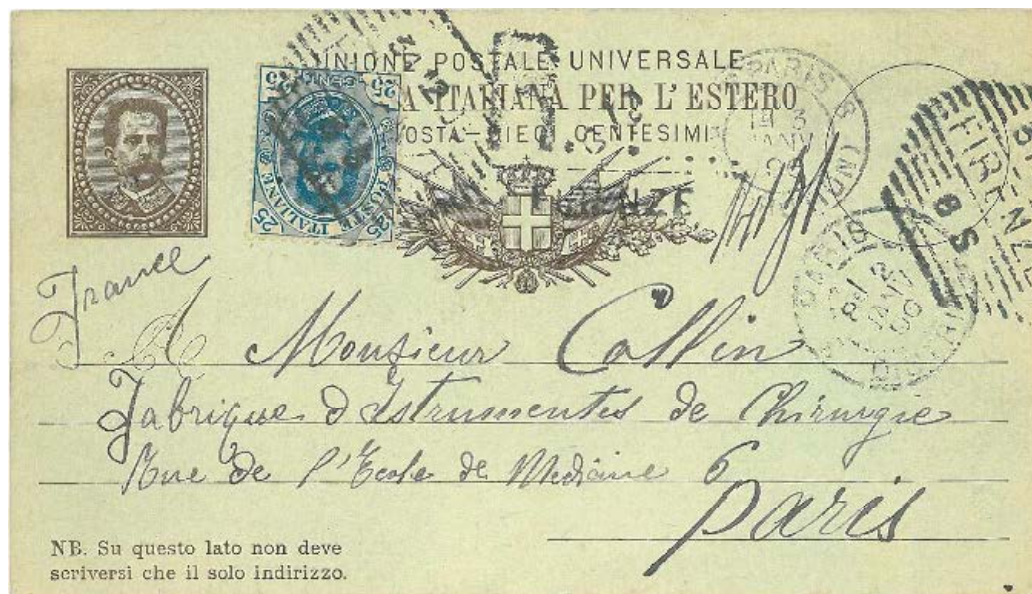 UNIONE POSTALE UNIVERSALE
A ITALIANA PER L'ESTERO
OSTA — DIECI CENTESIMI
25 CENT. 25
POSTE ITALIANE
25 25
PARIS
FIRENZE
8 S
PARIS
France
A Monsieur Collin
Fabrique d'Istrumentes de Chirurgie
Rue de l'Ecole de Medicine 6
Paris
NB. Su questo lato non deve
scriversi che il solo indirizzo.